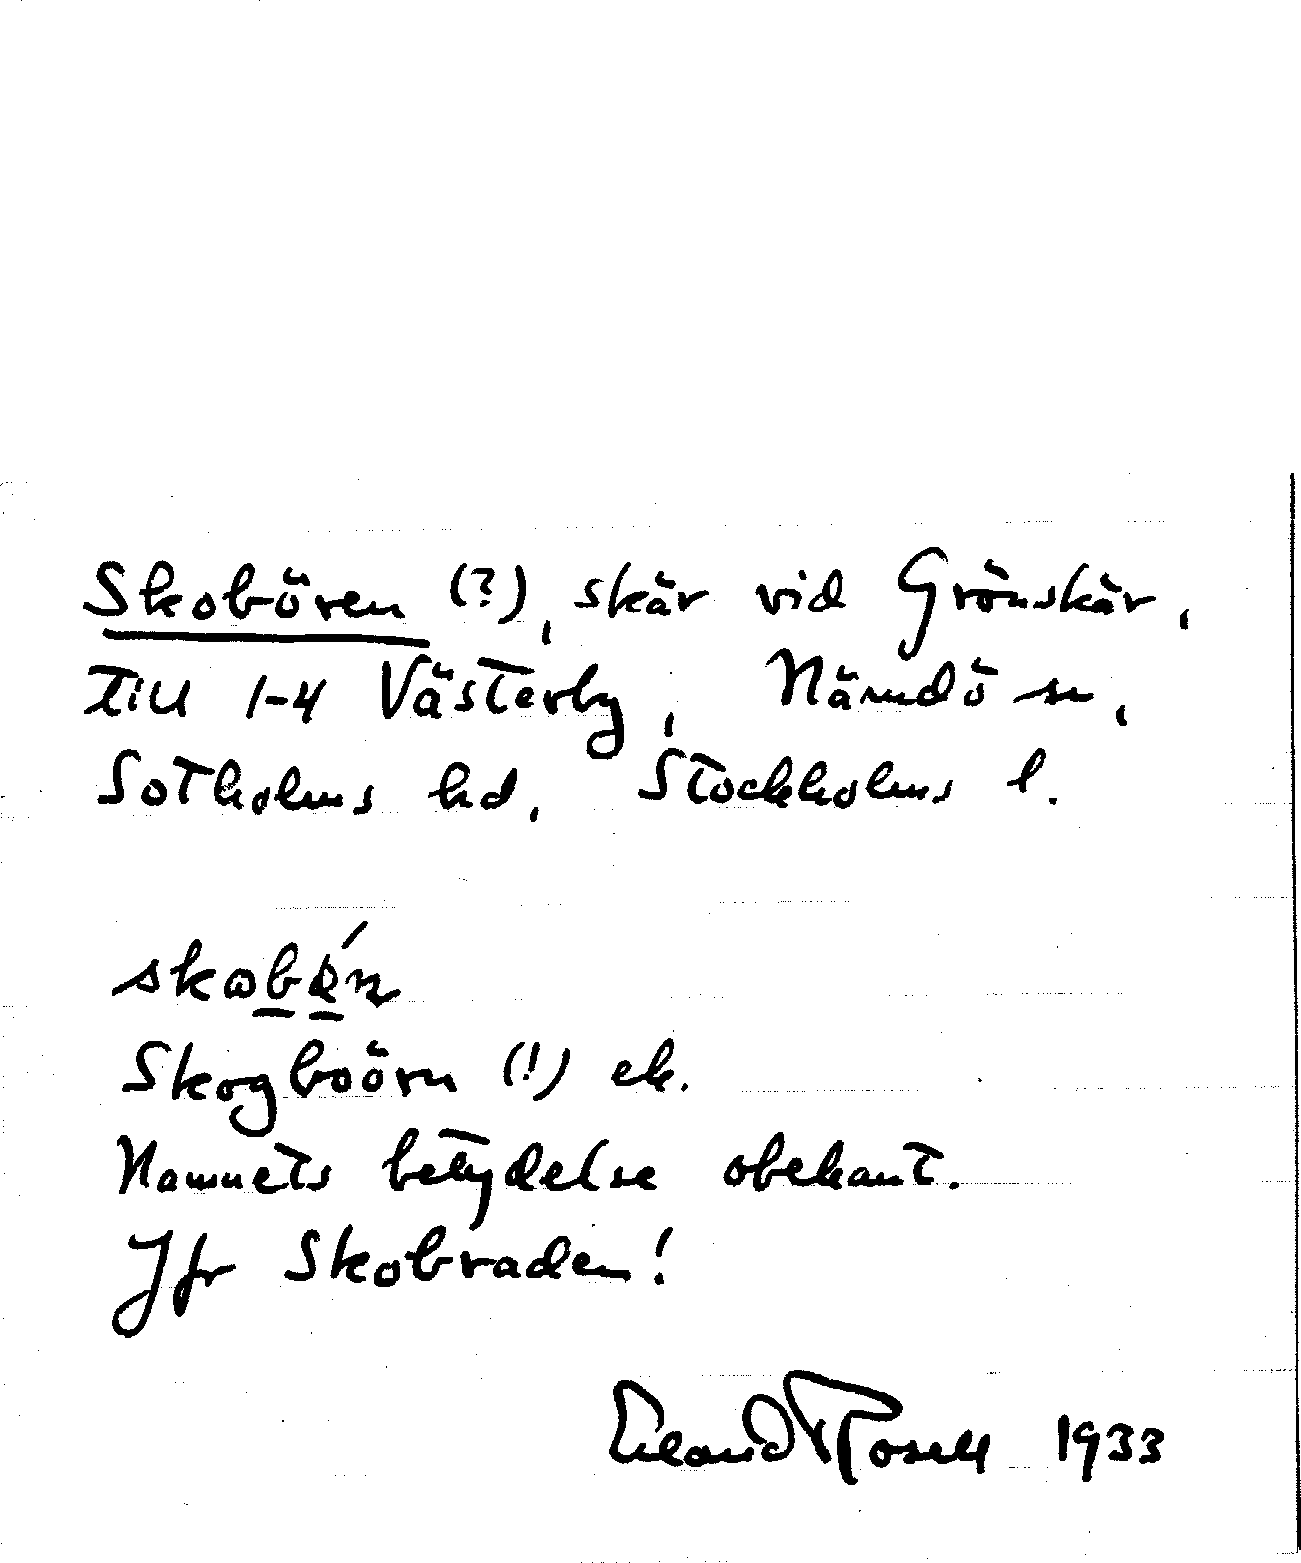 Skobören (?), skär vid Grönskär,
till 1-4 Västerby, Nämdö sn,
Sotholms hd, Stockholms l.
Skogboörn (!) ek.
Namnets betydelse obekant.
Jfr Skobraden!
Erland Rosell 1933